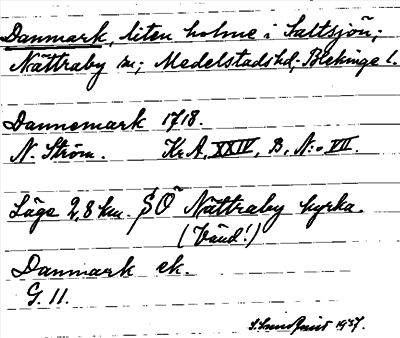 Danmark, liten holme i Saltsjön;
Nättraby sn; Medelstadshd; Blekinge l.
Dannemark 1718.
N. Ström. KrA, XXIV, B, N:o VII.
Läge 2,8 km. SÖ Nättraby kyrka.
(Vänd!)
Danmark ek.
G. 11.
1937.